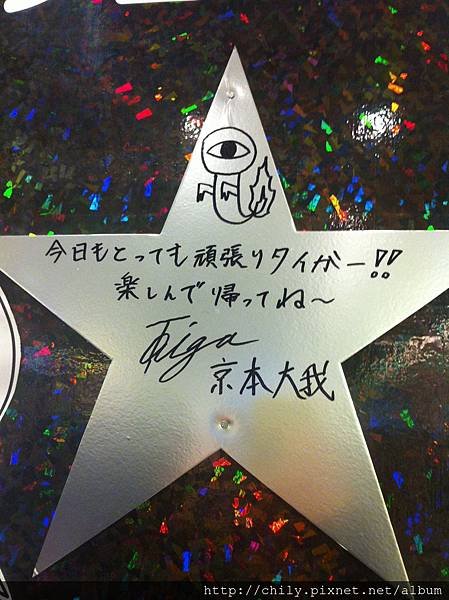 今日もとっても頑張りタイガー!!
楽しんで帰ってね〜
Taiga
京本大我
http://chily.pixnet.net/album